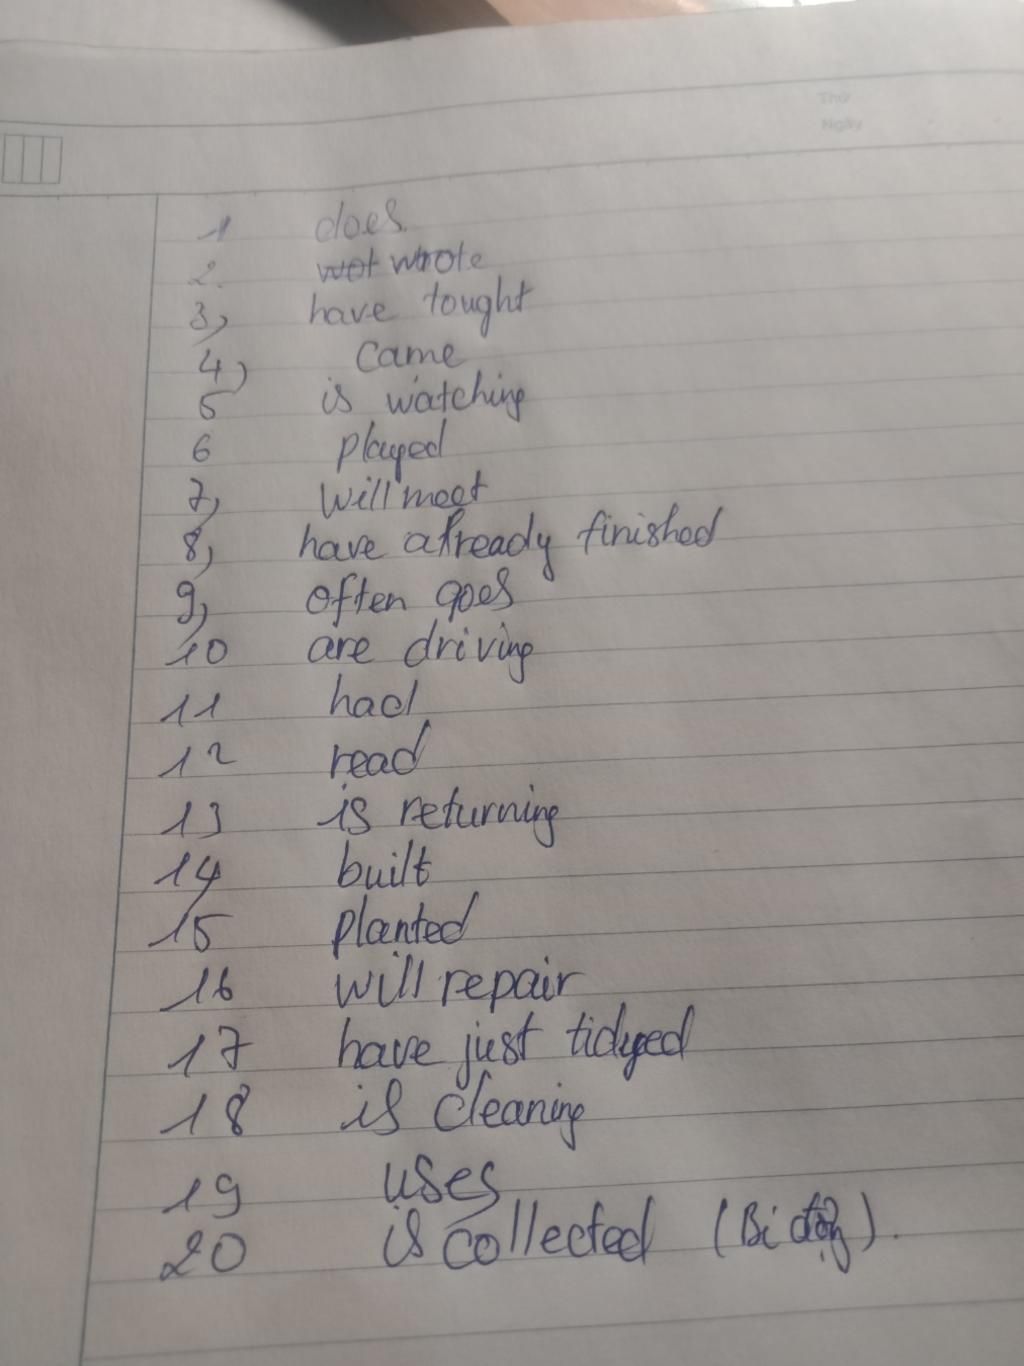 Thứ
Ngày
1 does
2. wrote
3, have tought
4) Came
5 is watching
6 played
7, Will meet
8, have already finished
9, often goes
10 are driving
11 had
12 read
13 is returning
14 built
15 planted
16 will repair
17 have just tidyed
18 is cleaning
19 uses
20 is collected (Bị động).